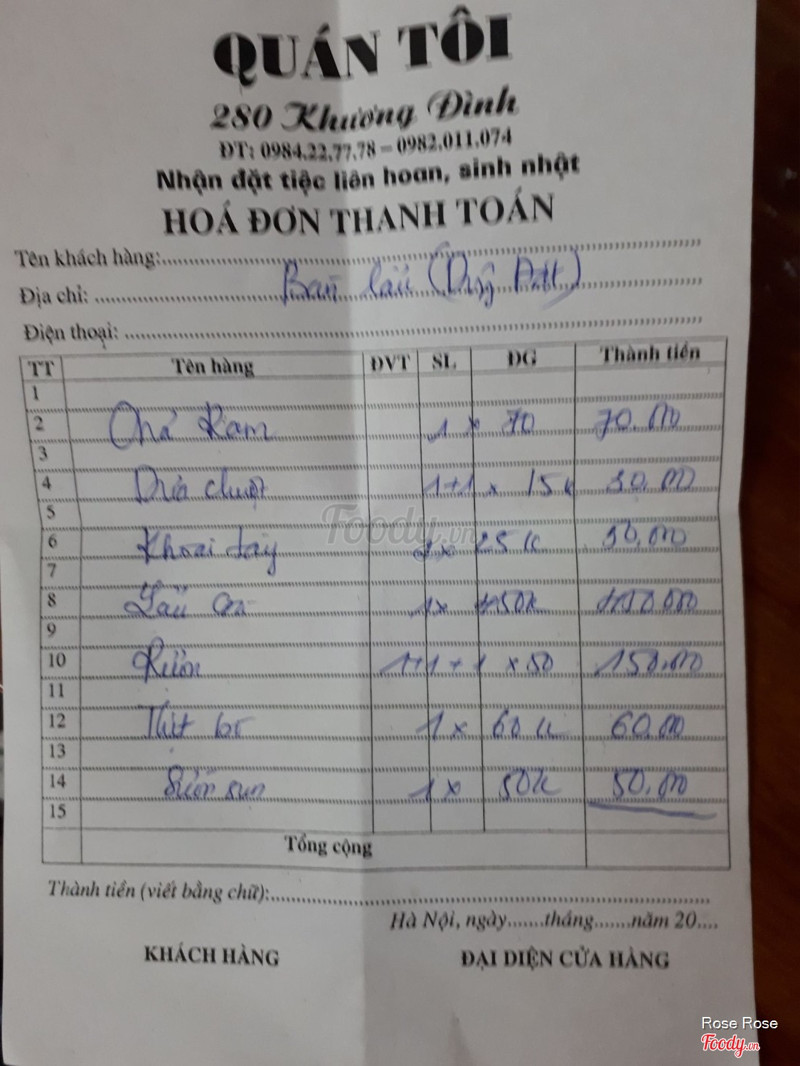 QUÁN TÔI
280 Khương Đình
ĐT: 0984.22.77.78 – 0982.011.074
Nhận đặt tiệc liên hoan, sinh nhật
HOÁ ĐƠN THANH TOÁN
Tên khách hàng:
Địa chỉ:
Điện thoại:
TT Tên hàng ĐVT SL ĐG Thành tiền
1
2 70 70.000
3
4 Dưa chuột 1+1 x 15k 30.000
5
6 Khoai tây 2x 25k 50.000
7
8 Lẩu 1x
9
10 1+1+1 x 50 150.000
11
12 Thịt bò 1x 60k 60.000
13
14 Sườn sụn 1x 50k 50.000
15
Tổng cộng
Thành tiền (viết bằng chữ):
Hà Nội, ngày.......tháng.......năm 20....
KHÁCH HÀNG ĐẠI DIỆN CỬA HÀNG
Foody.vn
Rose Rose
Foody.vn